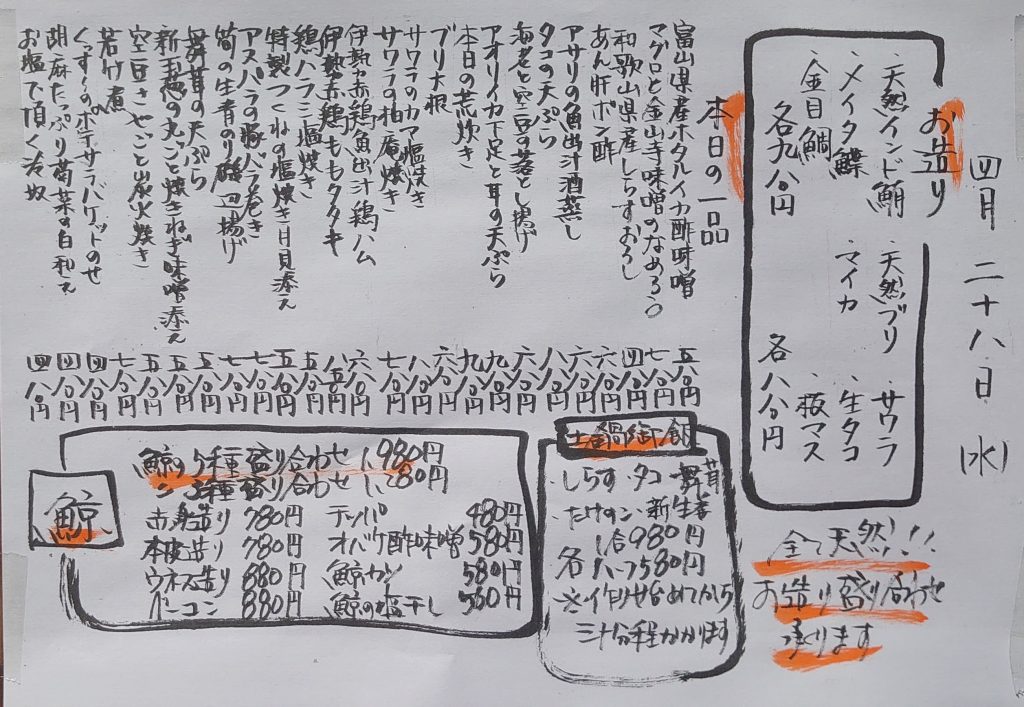 四月二十八日(水)
お造り
・天然インド鮪 ・天然ブリ ・サワラ
・メイタ鰈 ・マイカ ・生タコ
・金目鯛 ・板マス
各九八〇円 各八八〇円
全て天然!!
お造り盛り合わせ
承ります
本日の一品
富山県産ホタルイカ酢味噌 五八〇円
マグロと金山寺味噌のなめろう 七八〇円
和歌山県産しらすおろし 四八〇円
あん肝ポン酢 六八〇円
アサリの魚出汁酒蒸し 六八〇円
タコの天ぷら 八八〇円
海老と空豆の落とし揚げ 六八〇円
アオリイカ下足と耳の天ぷら 九八〇円
本日の荒炊き 九八〇円
ブリ大根 六八〇円
サワラのカマ塩焼き 八八〇円
サワラの柚庵焼き 七八〇円
伊勢赤鶏魚出汁鶏ハム 六八〇円
伊勢赤鶏ももタタキ
鶏ハラミ塩焼き 五八〇円
特製つくねの塩焼き 月見添え 五八〇円
アスパラの豚バラ巻き 七八〇円
筍の生青のり磯辺揚げ 七八〇円
舞茸の天ぷら 五八〇円
新玉葱の丸ごと焼きねぎ味噌添え 五八〇円
空豆さやごと炭火焼き 五八〇円
若竹煮 七八〇円
くんすぃのポテサラバゲットのせ 四八〇円
胡麻たっぷり菊菜の白和え 四八〇円
お塩で頂く冷奴 四八〇円
土鍋御飯
しらす タコ 舞茸
たけのこ 新生姜
一合980円
各ハーフ580円
※作りせ始めてから
三十分程かかります
鯨
鯨の5種盛り合わせ 1,980円
〃 3種盛り合わせ 1,280円
赤身造り 780円 テッパ 480円
本皮造り 780円 オバケ酢味噌 580円
ウネス造り 880円 鯨カツ 580円
ベーコン 880円 鯨の塩干し 560円